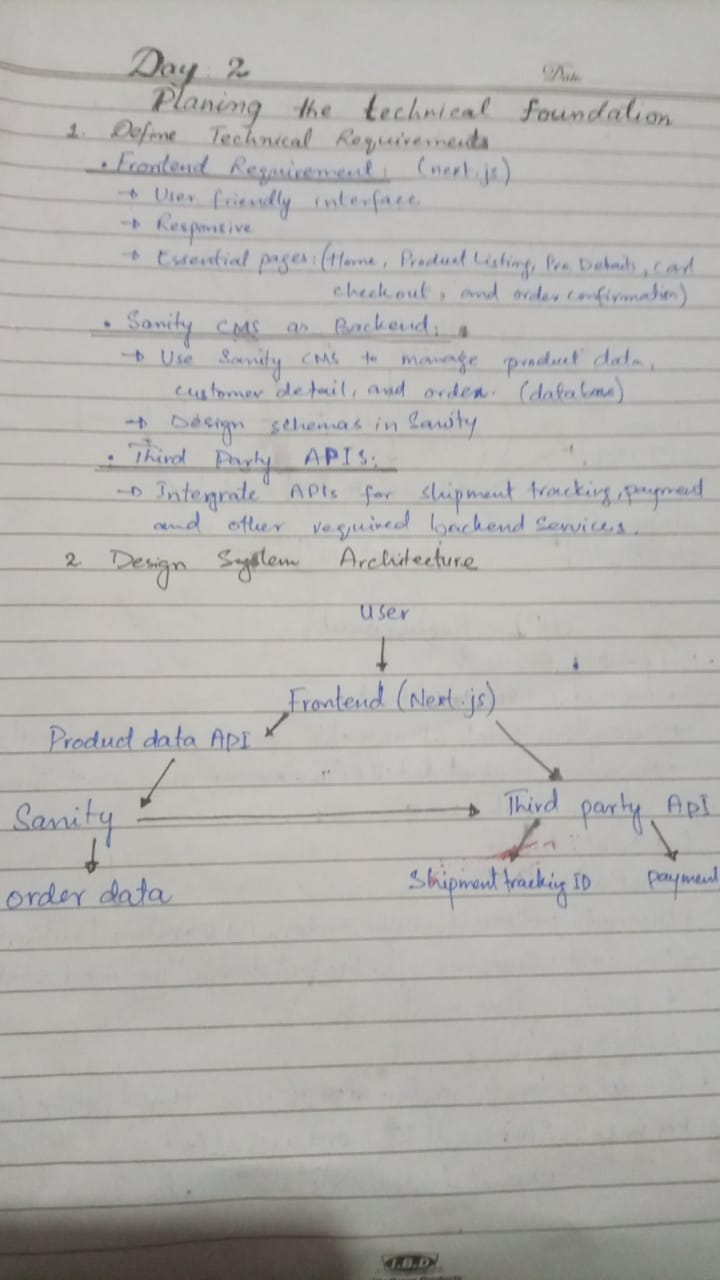 Day 2
Date
Planing the technical foundation
1. Define Technical Requirements
• Frontend Requirement: (next.js)
→ User friendly interface
→ Responsive
→ Essential pages: (Home, Product Listing, Pro. Details, cart
checkout, and order confirmation)
• Sanity CMS as Backend:
→ Use Sanity CMS to manage product data,
customer detail, and order. (database)
→ Design schemas in Sanity
• Third Party APIS:
→ Intergrate APIs for shipment tracking, payment
and other required backend services.
2. Design System Architecture
User
Frontend (Next.js)
Product data API
Sanity
Third party API
order data
Shipment tracking ID
payment
I.B.D